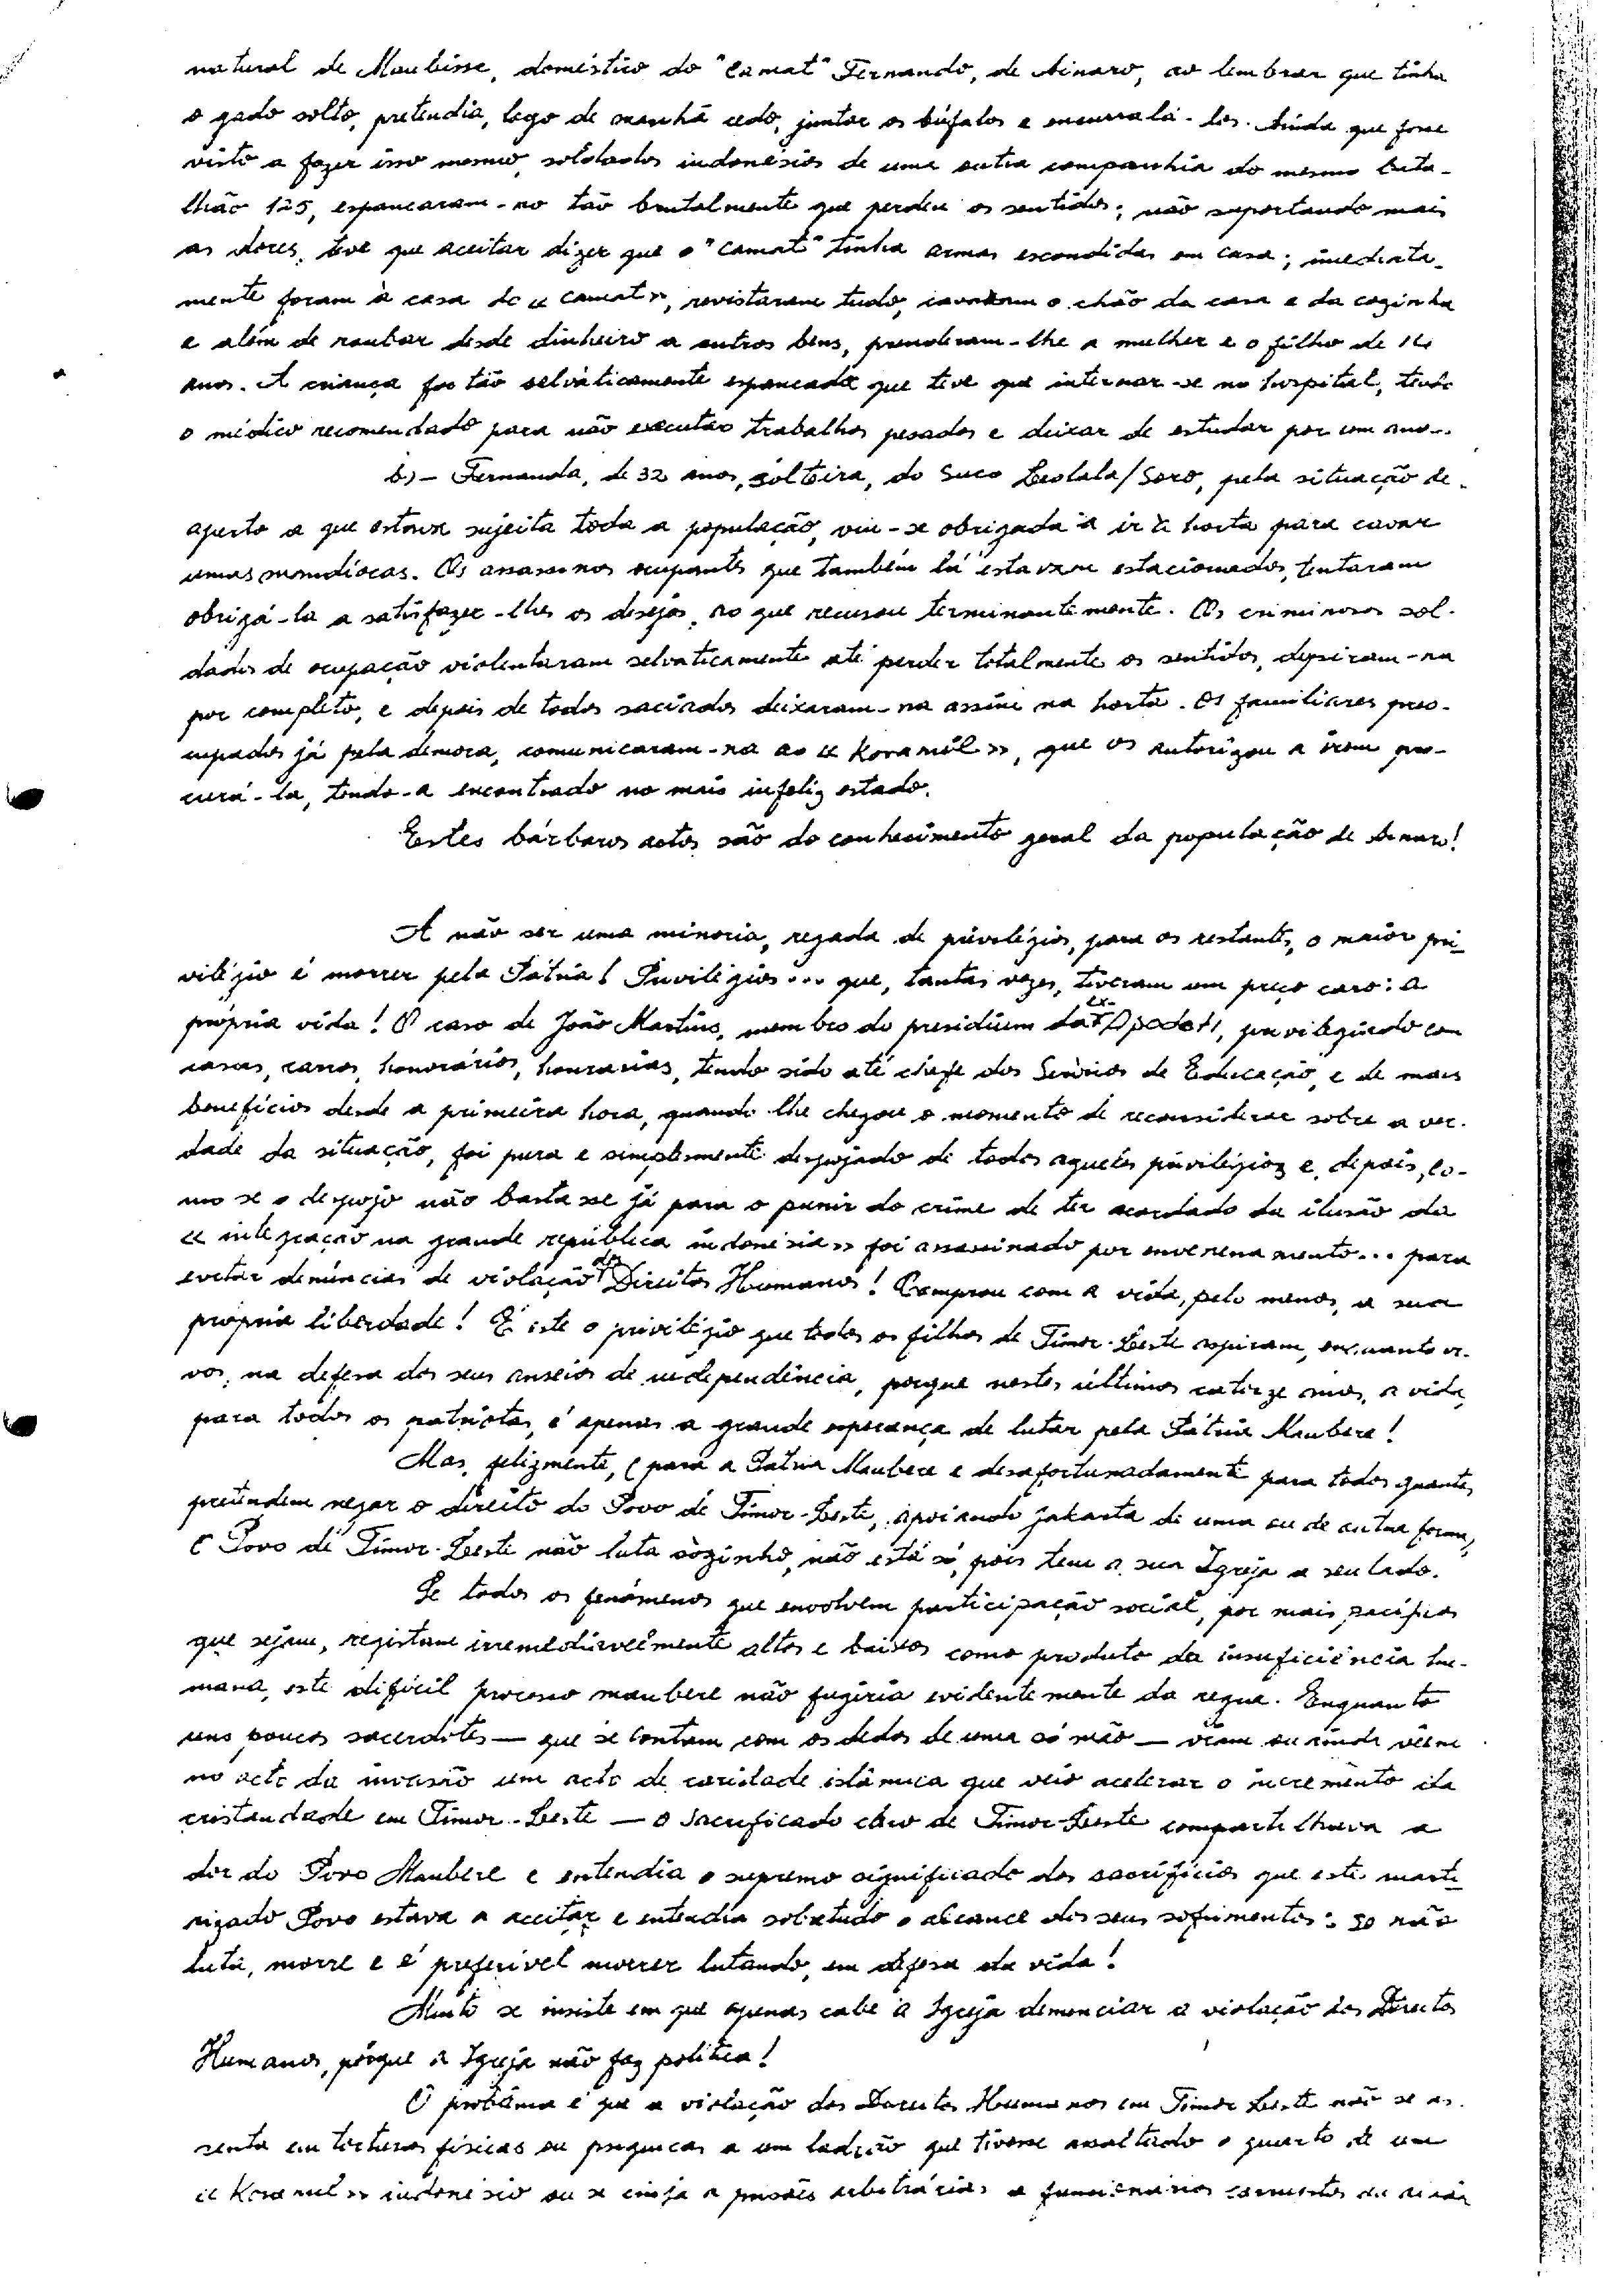 natural de Maubisse, doméstico do "Camat" Fernando, de Ainaro, ao lembrar que tinha
o gado solto, pretendia, logo de manhã cedo, juntar os búfalos e encurralá-los. Ainda que fosse
visto a fazer isso mesmo, soldados indonésios de uma outra companhia do mesmo bata-
lhão 125, espancaram-no tão brutalmente que perdeu os sentidos; não suportando mais
as dores, teve que aceitar dizer que o "Camat" tinha armas escondidas em casa; imediata-
mente foram à casa do «camat», revistaram tudo, cavaram o chão da casa e da cozinha
e além de roubar desde dinheiro a outros bens, prenderam-lhe a mulher e o filho de 14
anos. A criança foi tão selvàticamente espancada que teve que internar-se no hospital, tendo
o médico recomendado para não executar trabalhos pesados e deixar de estudar por um ano...
b) - Fernanda, de 32 anos, solteira, do Suco Leolala/Soro, pela situação de
aperto a que estava sujeita toda a população, viu-se obrigada a ir à horta para cavar
umas mandiocas. Os assassinos ocupantes que também lá estavam estacionados, tentaram
obrigá-la a satisfazer-lhes os desejos, ao que recusou terminantemente. Os criminosos sol-
dados de ocupação violentaram selvaticamente até perder totalmente os sentidos, despiram-na
por completo, e depois de todos saciados deixaram-na assim na horta. Os familiares preo-
cupados já pela demora, comunicaram-na ao «Koramil», que os autorizou a irem pro-
curá-la, tendo-a encontrado no mais infeliz estado.
Estes bárbaros actos são do conhecimento geral da população de Ainaro!
A não ser uma minoria, regada de privilégios, para os restantes, o maior pri-
vilégio é morrer pela Pátria! Privilégios... que, tantas vezes, tiveram um preço caro: a
própria vida! O caso de João Martins, membro do presidium da ex-Apodeti, privilegiado com
casas, carros, honorários, honrarias, tendo sido até chefe dos Serviços de Educação, e de mais
benefícios desde a primeira hora, quando lhe chegou o momento de reconsiderar sobre a ver-
dade da situação, foi pura e simplesmente despojado de todos aqueles privilégios e, depois, co-
mo se o despojo não bastasse já para o punir do crime de ter acordado da ilusão da
«integração na grande república indonésia» foi assassinado por envenenamento... para
evitar denúncias de violação dos Direitos Humanos! Comprou com a vida, pelo menos, a sua
própria liberdade! É este o privilégio que todos os filhos de Timor-Leste aspiram, enquanto vi-
vos, na defesa dos seus anseios de independência, porque nestes últimos catorze anos, a vida,
para todos os patriotas, é apenas a grande esperança de lutar pela Pátria Maubere!
Mas, felizmente, (para a Pátria Maubere e desafortunadamente para todos quantos
pretendem negar o direito do Povo de Timor-Leste, apoiando Jakarta de uma ou de outra forma,
o Povo de Timor-Leste não luta sòzinho, não está só, pois tem a sua Igreja a seu lado.
Se todos os fenómenos que envolvem participação social, por mais pacíficos
que sejam, registam irremediàvelmente altos e baixos como produto da insuficiência hu-
mana, este difícil processo maubere não fugiria evidentemente da regra. Enquanto
uns poucos sacerdotes — que se contam com os dedos de uma só mão — viam ou ainda vêem
no acto da invasão um acto de caridade islâmica que veio acelerar o incremento da
cristandade em Timor-Leste — o sacrificado clero de Timor-Leste compartilhava a
dor do Povo Maubere e entendia o supremo significado dos sacrifícios que este marti-
rizado Povo estava a aceitar e entendia sobretudo o alcance dos seus sofrimentos: se não
luta, morre e é preferível morrer lutando, em defesa da vida!
Muito se insiste em que apenas cabe à Igreja denunciar a violação dos Direitos
Humanos, porque a Igreja não faz política!
O problema é que a violação dos Direitos Humanos em Timor Leste não se as-
senta em torturas físicas ou psíquicas a um ladrão que tivesse assaltado o quarto de um
«Koramil» indonésio ou se cinja a prisões arbitrárias a funcionários corruptos ou ainda